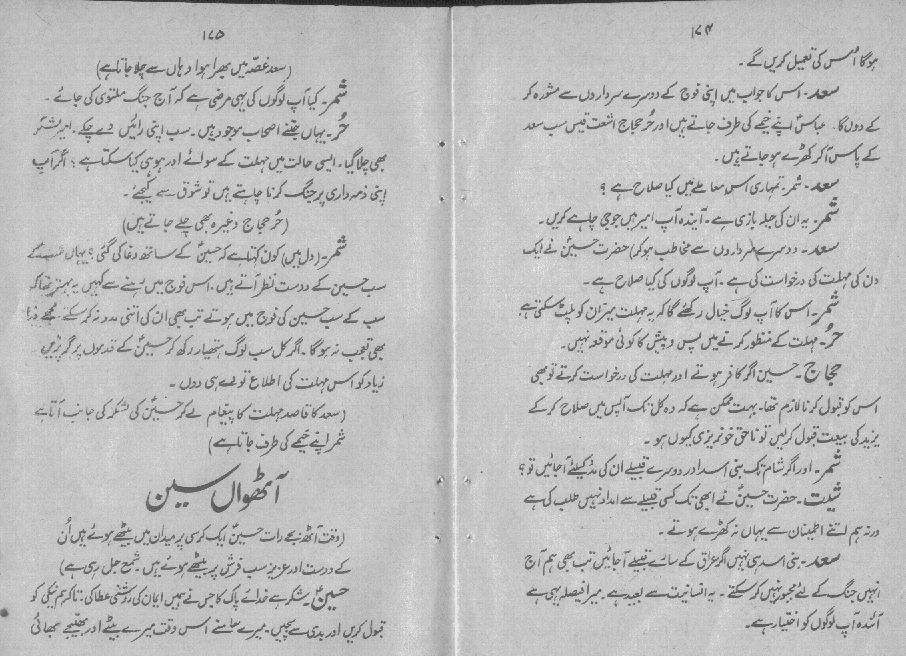 ۱۷۴
ہوگا اُس کی تعمیل کریں گے۔
سعد۔ اس کا جواب میں اپنی فوج کے دوسرے سرداروں سے مشورہ کر
کے دوں گا۔ عباسؑ اپنے خیمے کی طرف جاتے ہیں اور حُر حجاج اشعث قیس سب سعد
کے پاس آکر کھڑے ہو جاتے ہیں۔
سعد۔ شمر۔ تمہاری اس معاملے میں کیا صلاح ہے ؟
شمر۔ یہ ان کی حیلہ بازی ہے۔ آیندہ آپ امیر ہیں جو جی چاہے کریں۔
سعد۔ دوسرے سرداروں سے مخاطب ہو کر) حضرت حسینؑ نے ایک
دن کی مہلت کی درخواست کی ہے۔ آپ لوگوں کی کیا صلاح ہے۔
شمر۔ اس کا آپ لوگ خیال رکھئے گا کہ یہ مہلت میزان کو پلٹ سکتی ہے
حُر۔ مہلت کے منظور کرنے میں پس و پیش کا کوئی موقعہ نہیں۔
حجاج۔ حسین اگر کافر ہوتے اور مہلت کی درخواست کرتے تو بھی
اس کو قبول کرنا لازم تھا۔ بہت ممکن ہے کہ وہ کل تک آپس میں صلاح کر کے
یزید کی بیعت قبول کر لیں تو ناحق خونریزی کیوں ہو۔
شمر۔ اور اگر شام تک بنی اسد اور دوسرے قبیلے ان کی مدد کیلئے آجائیں تو؟
شیث۔ حضرت حسینؑ نے ابھی تک کسی قبیلے سے امداد نہیں طلب کی ہے
ورنہ ہم اتنے اطمینان سے یہاں نہ کھڑے ہوتے۔
سعد۔ بنی اسد ہی نہیں اگر عراق کے سارے قبیلے آجائیں تب بھی ہم آج
انہیں جنگ کے لئے مجبور نہیں کر سکتے۔ یہ انسانیت سے بعید ہے۔ میرا فیصلہ یہی ہے
آئندہ آپ لوگوں کو اختیار ہے۔
۱۷۵
(سعد غصّہ میں بھرا ہوا وہاں سے چلا جاتا ہے)
شمر۔ کیا آپ لوگوں کی یہی مرضی ہے کہ آج جنگ ملتوی کی جائے۔
حُر۔ یہاں جتنے اصحاب موجود ہیں۔ سب اپنی رائیں دے چکے۔ امیر لشکر
بھی چلا گیا۔ ایسی حالت میں مہلت کے سوائے اور ہو ہی کیا سکتا ہے ؛ اگر آپ
اپنی ذمہ داری پر جنگ کرنا چاہتے ہیں تو شوق سے کیجئے۔
(حُر حجاج وغیرہ بھی چلے جاتے ہیں)
شمر۔ (دل میں) کون کہتا ہے کہ حسینؑ کے ساتھ دغا کی گئی ؟ یہاں
سب حسین کے دوست نظر آتے ہیں۔ اس فوج میں رہنے سے کہیں یہ بہتر تھا کہ
سب کے سب حسین کی فوج میں ہوتے تب بھی ان کی اتنی مدد نہ کر سکتے۔ مجھے ذرا
بھی تعجب نہ ہو گا۔ اگر کل سب لوگ ہتھیار رکھ کر حسینؑ کے قدموں پر گر پڑیں
زیاد کو اس مہلت کی اطلاع تو دے ہی دوں۔
(سعد کا قاصد مہلت کا پیغام لے کر حسینؑ کی لشکر کی جانب آتا ہے
شمر اپنے خیمے کی طرف جاتا ہے)
آٹھواں سین
(وقت آٹھ بجے رات حسینؑ ایک کرسی پر میدان میں بیٹھے ہوئے ہیں اُن
کے دوست اور عزیز سب فرش پر بیٹھے ہوئے ہیں۔ شمع جل رہی ہے)
حسینؑ۔ شکر ہے خدائے پاک کا جس نے ہمیں ایمان کی روشنی عطا کی۔ تاکہ ہم نیکی کو
قبول کریں اور بدی سے بچیں۔ میرے سامنے اس وقت میرے بیٹے اور بھتیجے بھائی